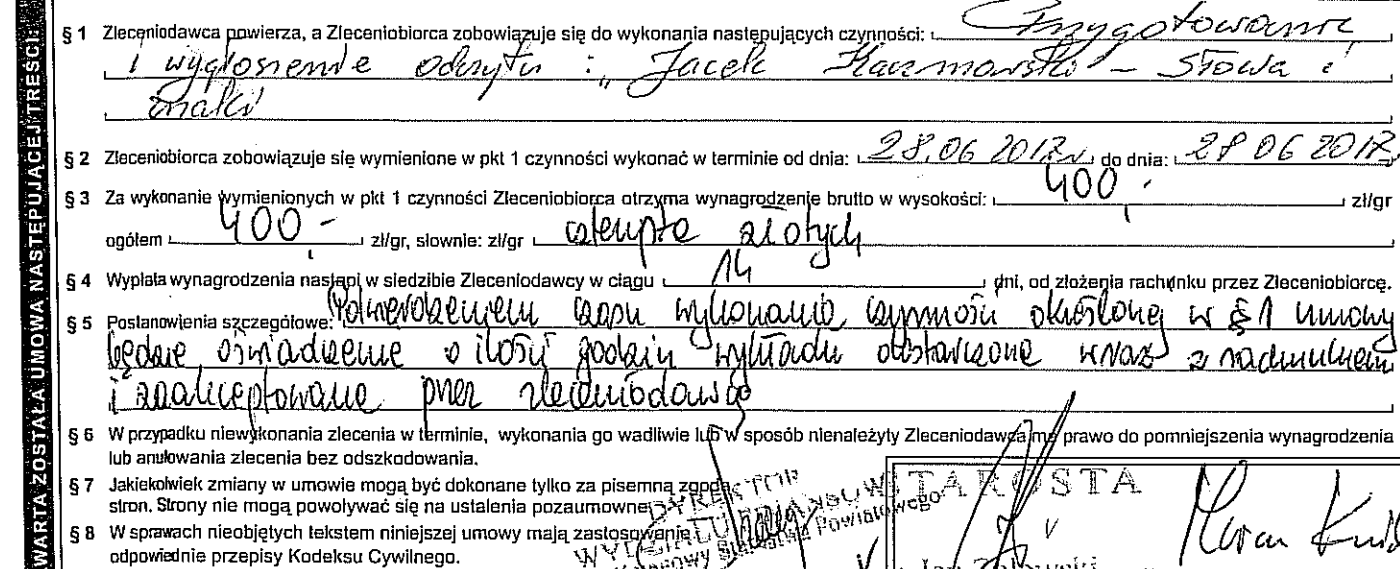 WARTA ZOSTAŁA UMOWA NASTĘPUJĄCEJ TREŚCI
§ 1 Zleceniodawca powierza, a Zleceniobiorca zobowiązuje się do wykonania następujących czynności: Przygotowanie
i wygłoszenie odczytu : "Jacek Kaczmarski – Słowa i
znaki
§ 2 Zleceniobiorca zobowiązuje się wymienione w pkt 1 czynności wykonać w terminie od dnia: 28.06 2017r. do dnia: 28 06 2017r.
§ 3 Za wykonanie wymienionych w pkt 1 czynności Zleceniobiorca otrzyma wynagrodzenie brutto w wysokości: 400,- zł/gr
ogółem 400,- zł/gr, słownie: zł/gr czterysta złotych
§ 4 Wypłata wynagrodzenia nastąpi w siedzibie Zleceniodawcy w ciągu 14 dni, od złożenia rachunku przez Zleceniobiorcę.
§ 5 Postanowienia szczegółowe: Potwierdzeniem czasu wykonania czynności określonej w § 1 umowy
będzie oświadczenie o ilości godzin wykładu dostarczone wraz z rachunkiem
i zaakceptowane przez zleceniodawcę
§ 6 W przypadku niewykonania zlecenia w terminie, wykonania go wadliwie lub w sposób nienależyty Zleceniodawca ma prawo do pomniejszenia wynagrodzenia
lub anulowania zlecenia bez odszkodowania.
§ 7 Jakiekolwiek zmiany w umowie mogą być dokonane tylko za pisemną zgodą
stron. Strony nie mogą powoływać się na ustalenia pozaumowne.
§ 8 W sprawach nieobjętych tekstem niniejszej umowy mają zastosowanie
odpowiednie przepisy Kodeksu Cywilnego.
DYREKTOR
WYDZIAŁU FINANSÓW
Powiatowego
STAROSTA
Jan